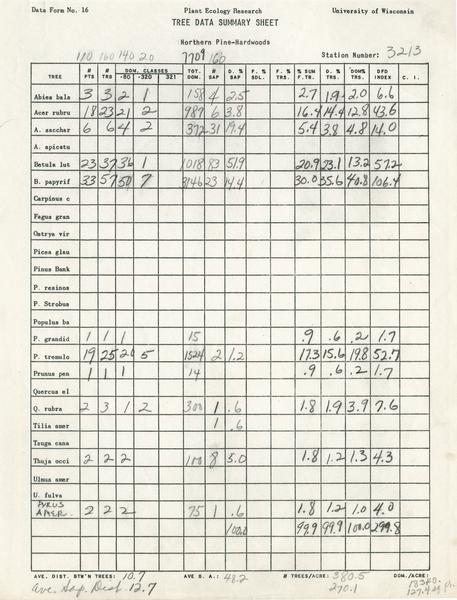 Data Form No. 16 Plant Ecology Research University of Wisconsin
TREE DATA SUMMARY SHEET
Northern Pine-Hardwoods
110 160 140 20 7709 160 Station Number: 3213
TREE # PTS # TRS DOM. CLASSES -80 -320 321 TOT. DOM. # SAP D. % SAP F. % SDL. F. % TRS. % SUM F. TR. D. % TRS. DOM% TRS. DFD INDEX C. I.
Abies bala 3 3 2 1 158 4 2.5 2.7 1.9 2.0 6.6
Acer rubru 18 23 21 2 987 6 3.8 16.4 14.4 12.8 43.6
A. sacchar 6 6 4 2 372 31 19.4 5.4 3.8 4.8 14.0
A. apicatu
Betula lut 23 37 36 1 1018 83 51.9 20.9 23.1 13.2 57.2
B. papyrif 33 57 50 7 3146 23 14.4 30.0 35.6 40.8 106.4
Carpinus c
Fagus gran
Ostrya vir
Picea glau
Pinus Bank
P. resinos
P. Strobus
Populus ba
P. grandid 1 1 1 15 .9 .6 .2 1.7
P. tremulo 19 25 20 5 1524 2 1.2 17.3 15.6 19.8 52.7
Prunus pen 1 1 1 14 .9 .6 .2 1.7
Quercus el
Q. rubra 2 3 1 2 300 1 .6 1.8 1.9 3.9 7.6
Tilia amer 1 .6
Tsuga cana
Thuja occi 2 2 2 100 8 5.0 1.8 1.2 1.3 4.3
Ulmus amer
U. fulva
PYRUS AMER. 2 2 2 75 1 .6 1.8 1.2 1.0 4.0
100.0 99.9 99.9 100.0 299.8
AVE. DIST. BTW'N TREES: 10.7 AVE B. A.: 48.2 # TREES/ACRE: 380.5 DOM./ACRE: 18340.
Ave. Sap. Dist. 12.7 270.1 127.4 sq ft.